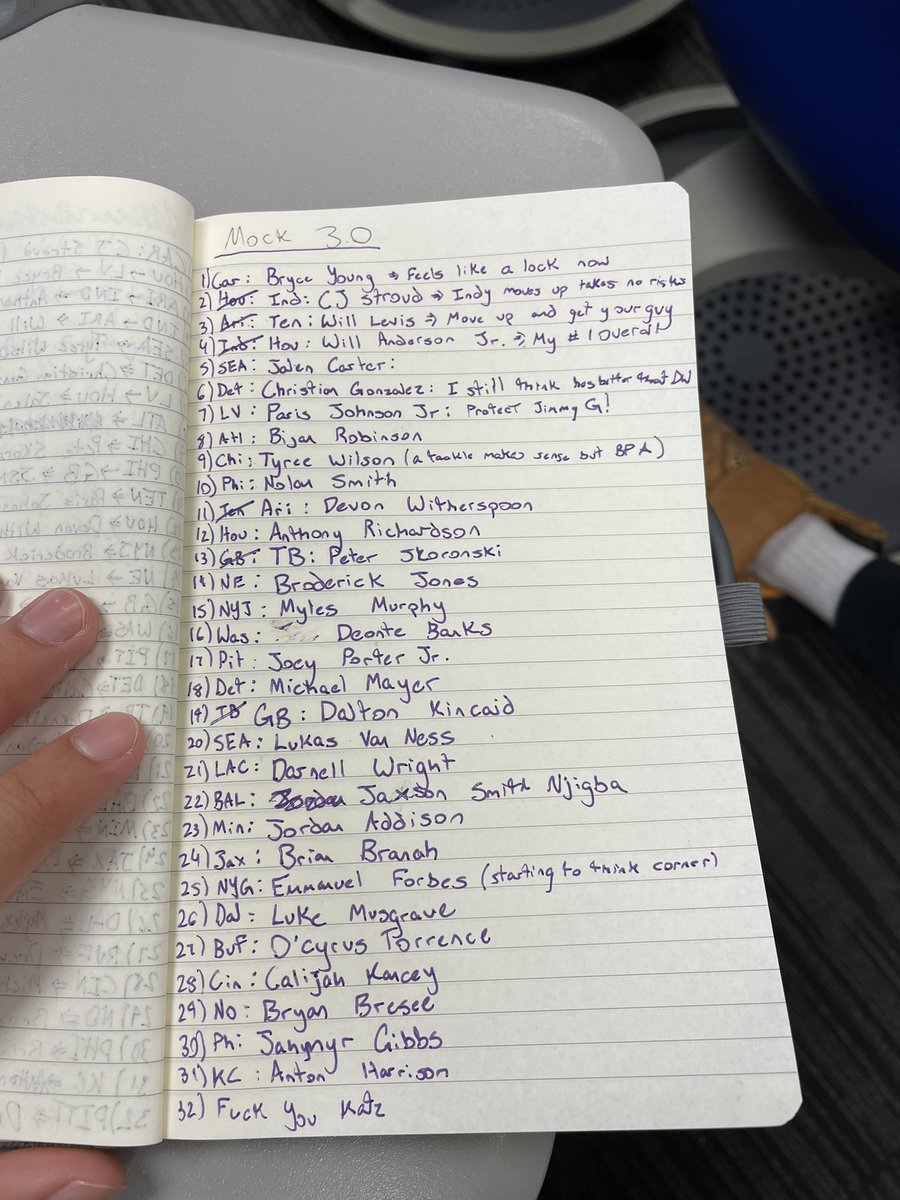 Mock 3.0
1) Car: Bryce Young ⇒ Feels like a lock now
2) Hou: Ind: CJ Stroud ⇒ Indy moves up takes no risks
3) Ari: Ten: Will Levis ⇒ Move up and get your guy
4) Ind: Hou: Will Anderson Jr. ⇒ My #1 Overall
5) SEA: Jalen Carter:
6) Det: Christian Gonzalez: I still think hes better than DW
7) LV: Paris Johnson Jr: Protect Jimmy G!
8) Atl: Bijan Robinson
9) Chi: Tyree Wilson (a tackle makes sense but BPA)
10) Phi: Nolan Smith
11) Ten Ari: Devon Witherspoon
12) Hou: Anthony Richardson
13) GB: TB: Peter Skoronski
14) NE: Broderick Jones
15) NYJ: Myles Murphy
16) Was: Deonte Banks
17) Pit: Joey Porter Jr.
18) Det: Michael Mayer
19) TB GB: Dalton Kincaid
20) SEA: Lukas Van Ness
21) LAC: Darnell Wright
22) BAL: Jordan Jaxson Smith Njigba
23) Min: Jordan Addison
24) Jax: Brian Branah
25) NYG: Emmanuel Forbes (starting to think corner)
26) Dal: Luke Musgrave
27) Buf: O'Cyrus Torrence
28) Cin: Calijah Kancey
29) No: Bryan Bresee
30) Ph: Jahymyr Gibbs
31) KC: Anton Harrison
32) Fuck You Katz